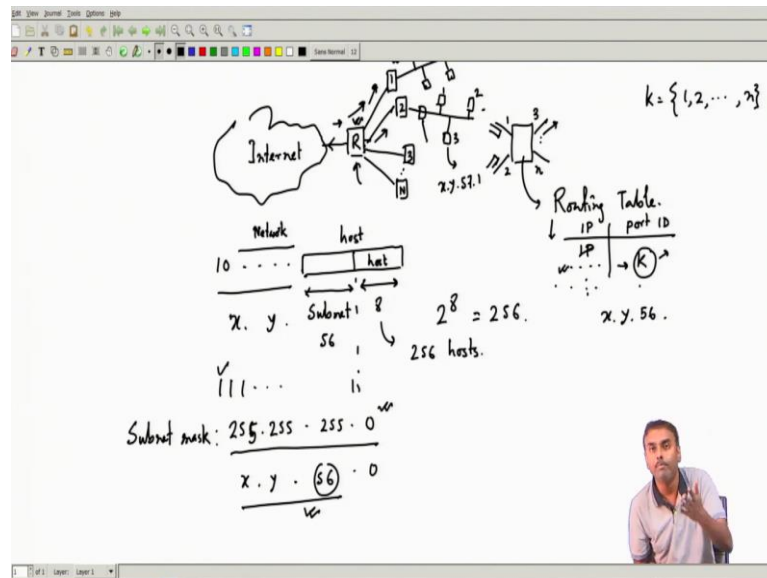 Edit View Journal Tools Options Help
Sans Normal 12
1
2
2
3
3
N
R
Internet
x.y.57.1
1
2
3
n
k = {1, 2, ..., n}
Routing Table.
IP port ID
IP
K
x. y. 56 .
Network
host
10 . . . . .
host
x. y. Subnet 8
56
2^8 = 256.
256 hosts.
111 . . .
Subnet mask: 255.255 . 255 . 0
x . y . 56 . 0
1 of 1 Layer: Layer 1